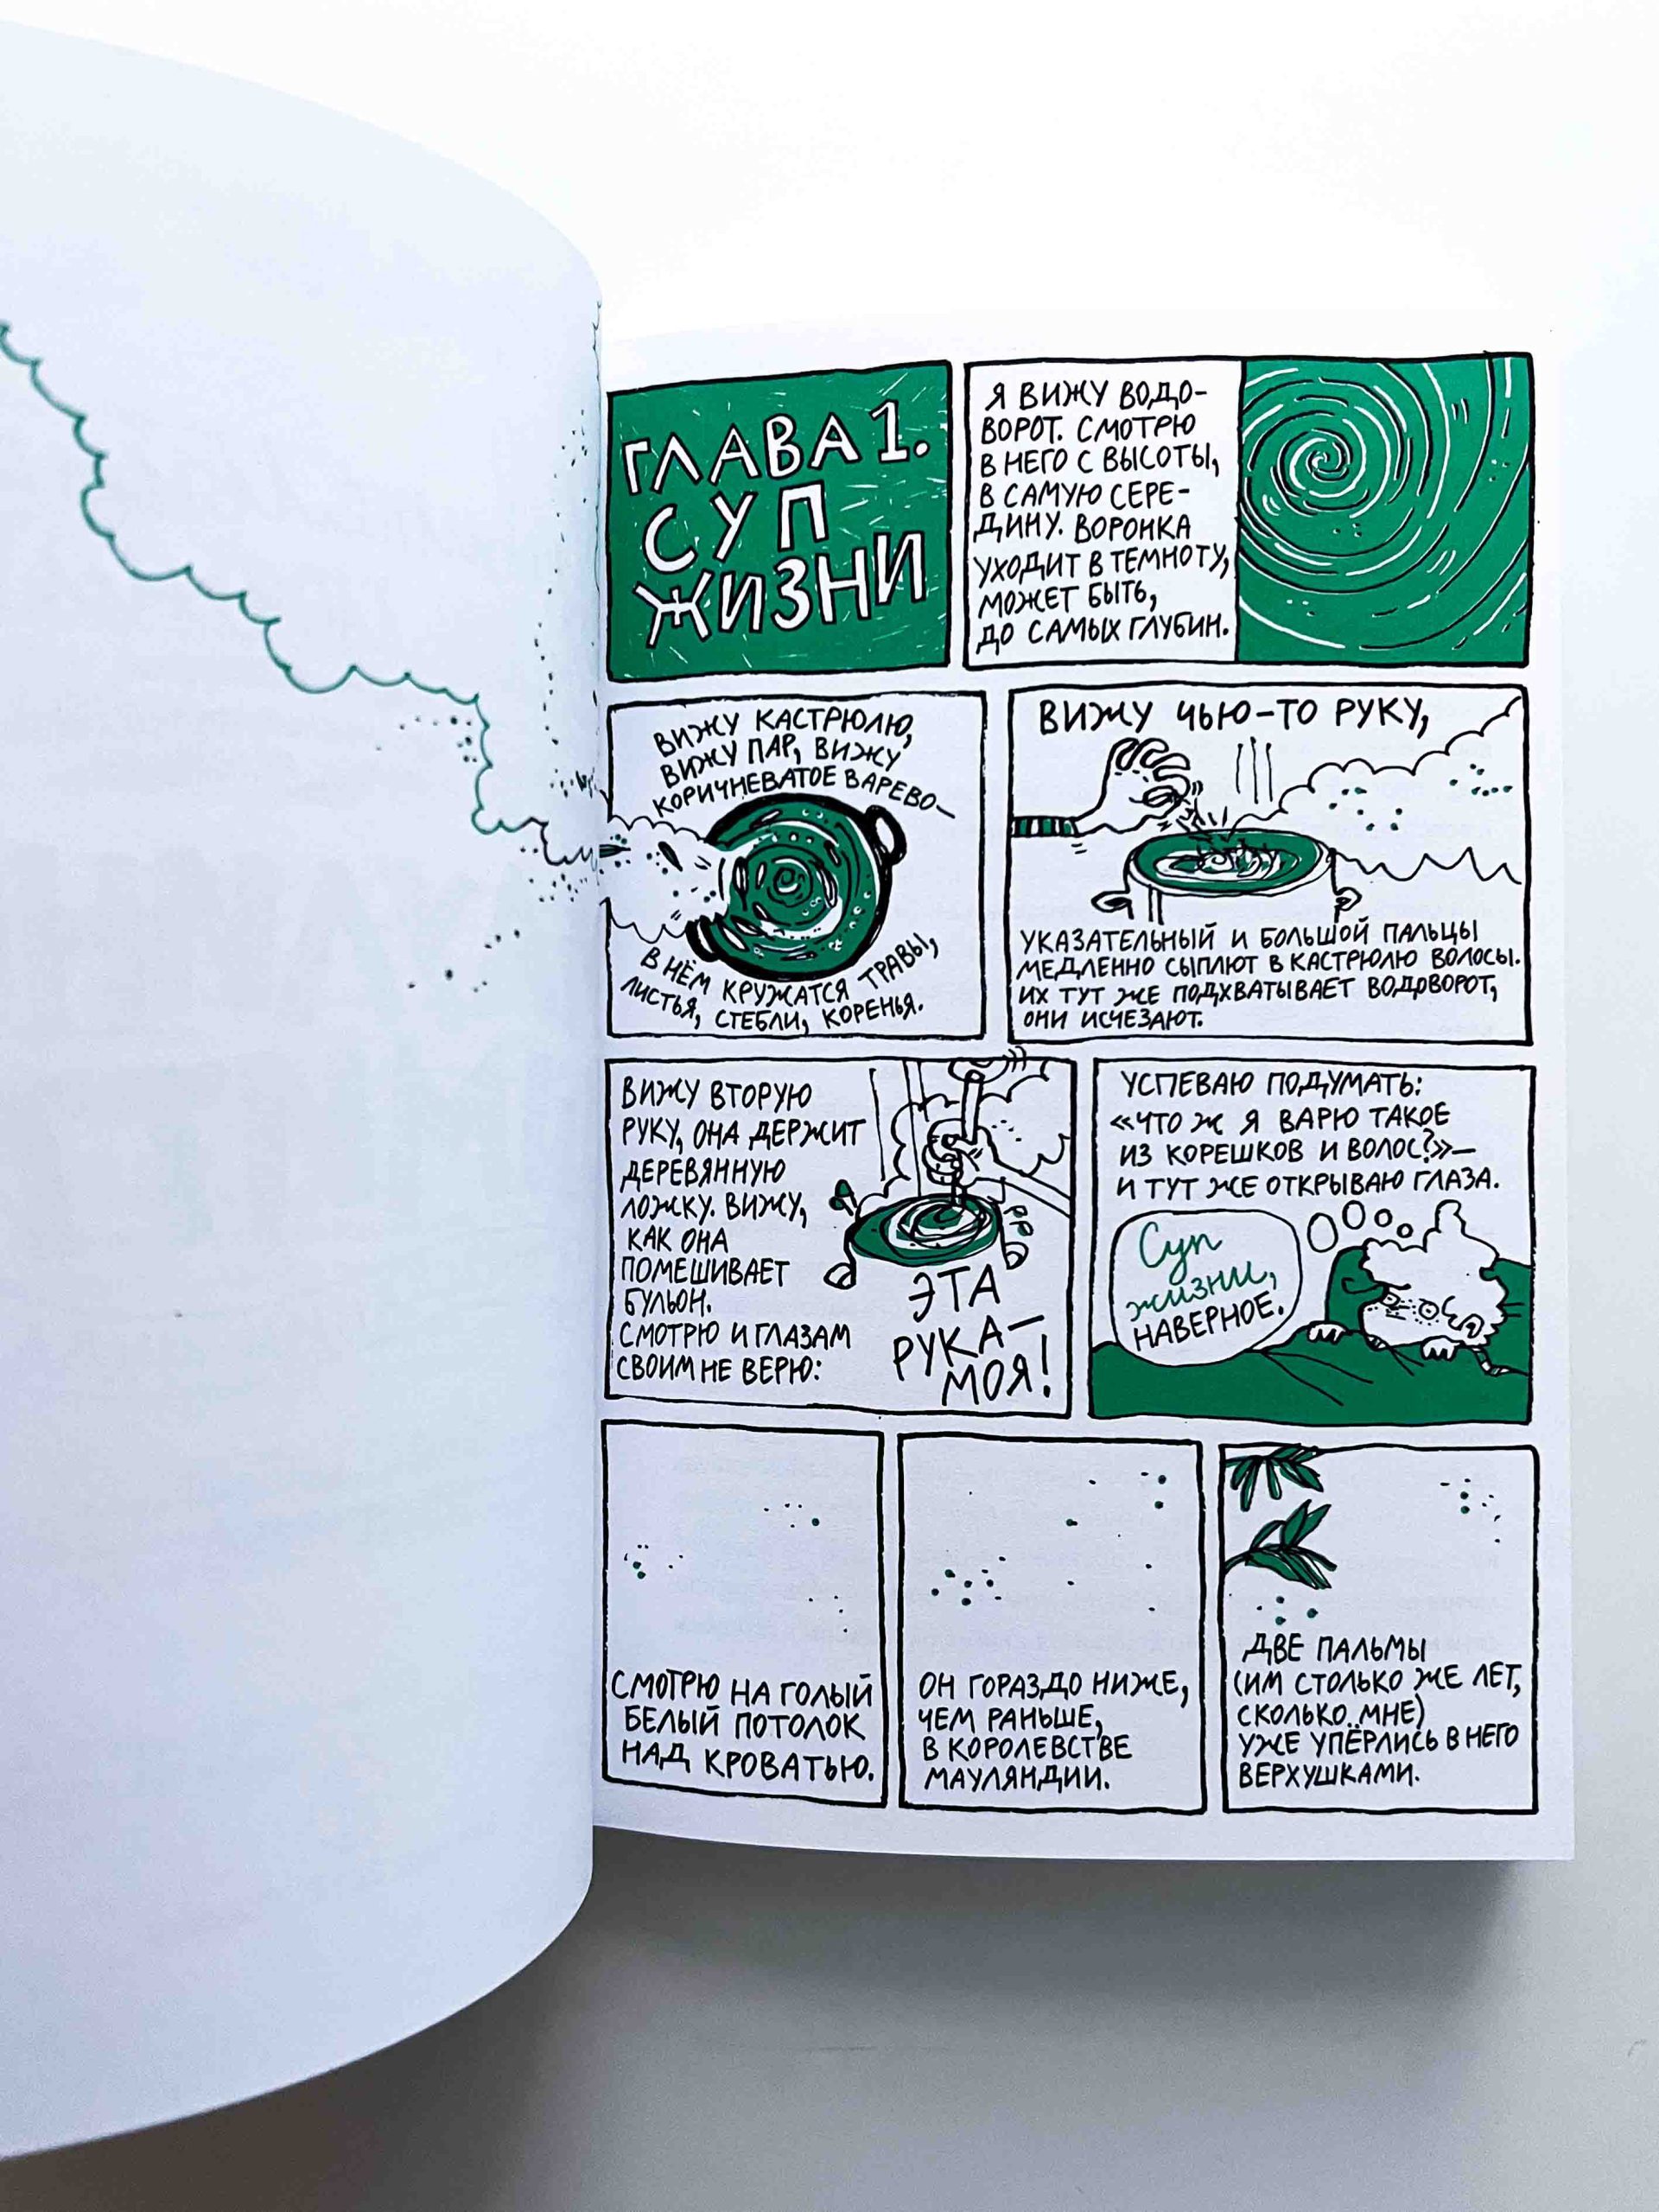 ГЛАВА 1.
СУП
ЖИЗНИ
Я ВИЖУ ВОДО-
ВОРОТ. СМОТРЮ
В НЕГО С ВЫСОТЫ,
В САМУЮ СЕРЕ-
ДИНУ. ВОРОНКА
УХОДИТ В ТЕМНОТУ,
МОЖЕТ БЫТЬ,
ДО САМЫХ ГЛУБИН.
ВИЖУ КАСТРЮЛЮ,
ВИЖУ ПАР, ВИЖУ
КОРИЧНЕВАТОЕ ВАРЕВО—
В НЁМ КРУЖАТСЯ ТРАВЫ,
ЛИСТЬЯ, СТЕБЛИ, КОРЕНЬЯ.
ВИЖУ ЧЬЮ-ТО РУКУ,
УКАЗАТЕЛЬНЫЙ И БОЛЬШОЙ ПАЛЬЦЫ
МЕДЛЕННО СЫПЛЮТ В КАСТРЮЛЮ ВОЛОСЫ.
ИХ ТУТ ЖЕ ПОДХВАТЫВАЕТ ВОДОВОРОТ,
ОНИ ИСЧЕЗАЮТ.
ВИЖУ ВТОРУЮ
РУКУ, ОНА ДЕРЖИТ
ДЕРЕВЯННУЮ
ЛОЖКУ. ВИЖУ,
КАК ОНА
ПОМЕШИВАЕТ
БУЛЬОН.
СМОТРЮ И ГЛАЗАМ
СВОИМ НЕ ВЕРЮ:
ЭТА
РУКА—
МОЯ!
УСПЕВАЮ ПОДУМАТЬ:
«ЧТО Ж Я ВАРЮ ТАКОЕ
ИЗ КОРЕШКОВ И ВОЛОС?»—
И ТУТ ЖЕ ОТКРЫВАЮ ГЛАЗА.
Суп
жизни,
НАВЕРНОЕ.
СМОТРЮ НА ГОЛЫЙ
БЕЛЫЙ ПОТОЛОК
НАД КРОВАТЬЮ.
ОН ГОРАЗДО НИЖЕ,
ЧЕМ РАНЬШЕ,
В КОРОЛЕВСТВЕ
МАУЛЯНДИИ.
ДВЕ ПАЛЬМЫ
(ИМ СТОЛЬКО ЖЕ ЛЕТ,
СКОЛЬКО МНЕ)
УЖЕ УПЁРЛИСЬ В НЕГО
ВЕРХУШКАМИ.